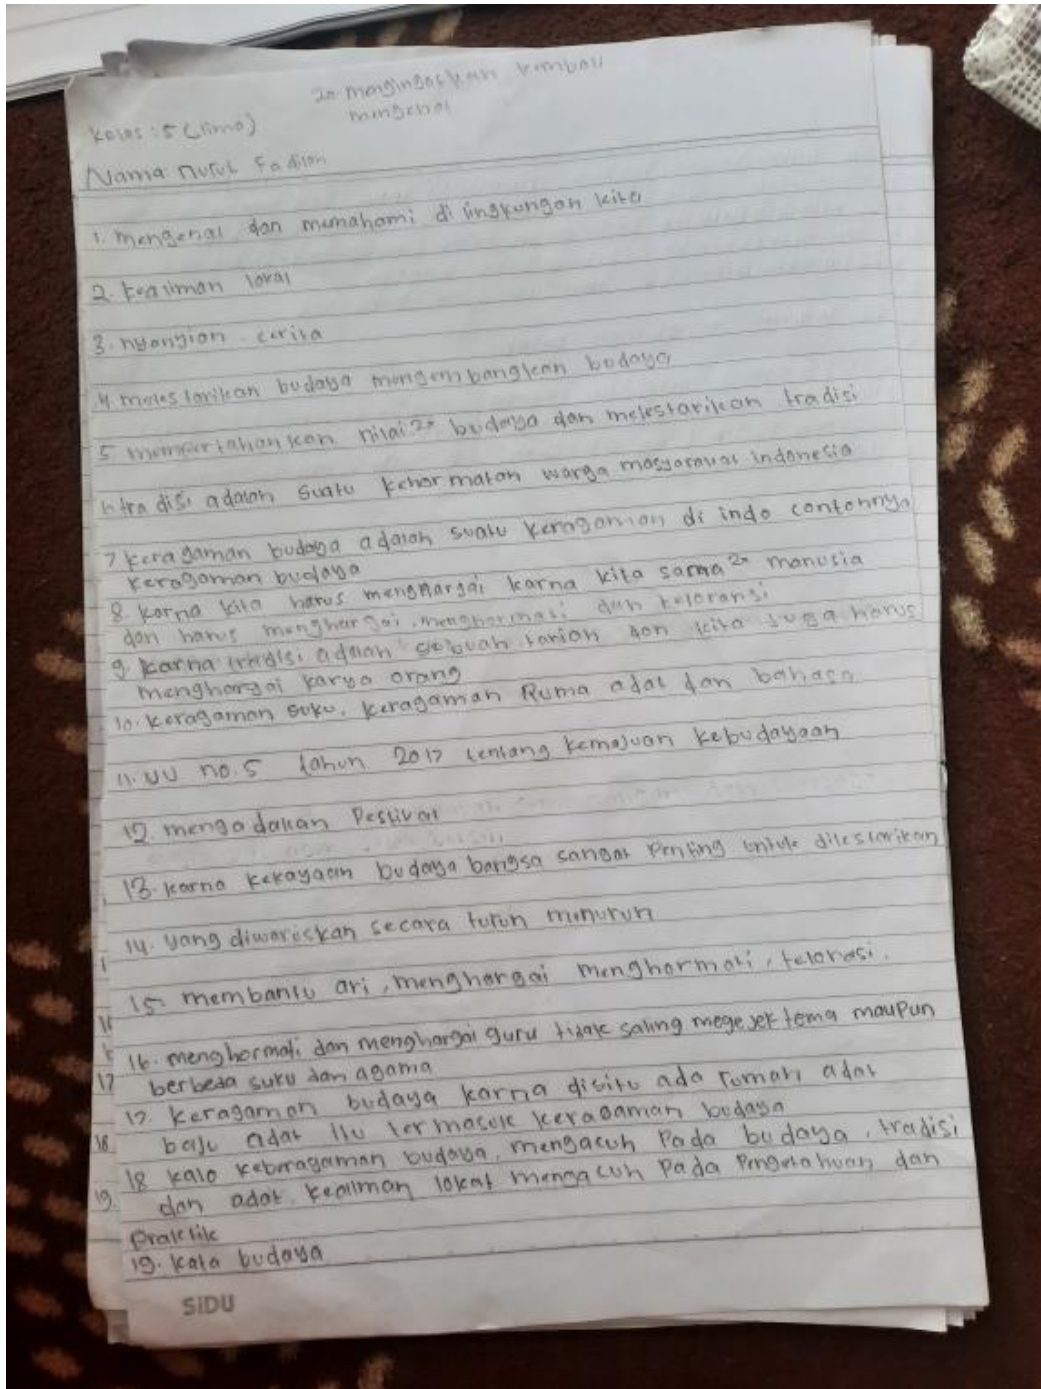 20. mengingatkan kembali
mengenal
Kelas : 5 (lima)
Nama: nurul Fadilah
1. mengenal dan memahami di lingkungan kita
2. kealiman lokal
3. nyanyian cerita
4. melestarikan budaya mengembangkan budaya
5. mempertahankan nilai2x budaya dan melestarikan tradisi
6 tradisi adalah suatu kehormatan warga masyarakat indonesia
7 keragaman budaya adalah suatu keragaman di indo contonnya
keragaman budaya
8. karna kita harus menghargai karna kita sama2x manusia
dan harus menghargai, menghormati dan toloransi
9. karna tradisi adalah sebuah tarian dan kita juga harus
menghargai karya orang
10. keragaman suku, keragaman Ruma adat dan bahasa
11. UU no.5 tahun 2017 tentang kemajuan kebudayaan
12. mengadakan Festival
13. karna kekayaan budaya bangsa sangat Penting untuk dilestarikan
14. yang diwariskan secara turun menurun
15. membantu ari, menghargai menghormati, telorasi.
16. menghormati dan menghargai guru tidak saling megejek tema maupun
17
berbeda suku dan agama
17. keragaman budaya karna disitu ada rumah adat
18
baju adat itu termasuk keragaman budaya
18 kalo keberagaman budaya, mengacuh Pada budaya, tradisi
19.
dan adat. kealiman lokal mengacuh Pada Pengetahuan dan
Praktik
19. kata budaya
SiDU